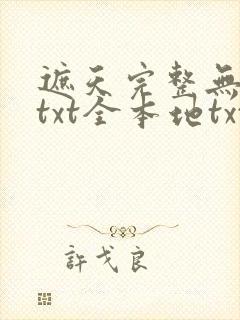 遮天完整無
txt全本地tx
許戈良